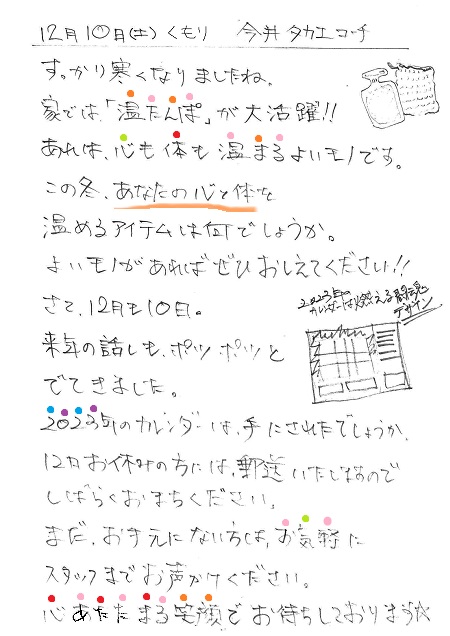 12月10日(土)くもり 今井タカエコーチ
すっかり寒くなりましたね。
家では、「温たんぽ」が大活躍!!
あれは、心も体も温まるよいモノです。
この冬、あなたの心と体を
温めるアイテムは何でしょうか。
よいモノがあればぜひおしえてください!!
さて、12月も10日。
2023年の
カレンダーは燃える闘魂
デザイン
来年の話しも、ポツポツと
でてきました。
2023年のカレンダーは、手にされたでしょうか。
12月お休みの方には、郵送いたしますので
しばらくおまちください。
まだ、お手元にない方は、お気軽に
スタッフまでお声かけください。
心あたたまる笑顔でお待ちしております